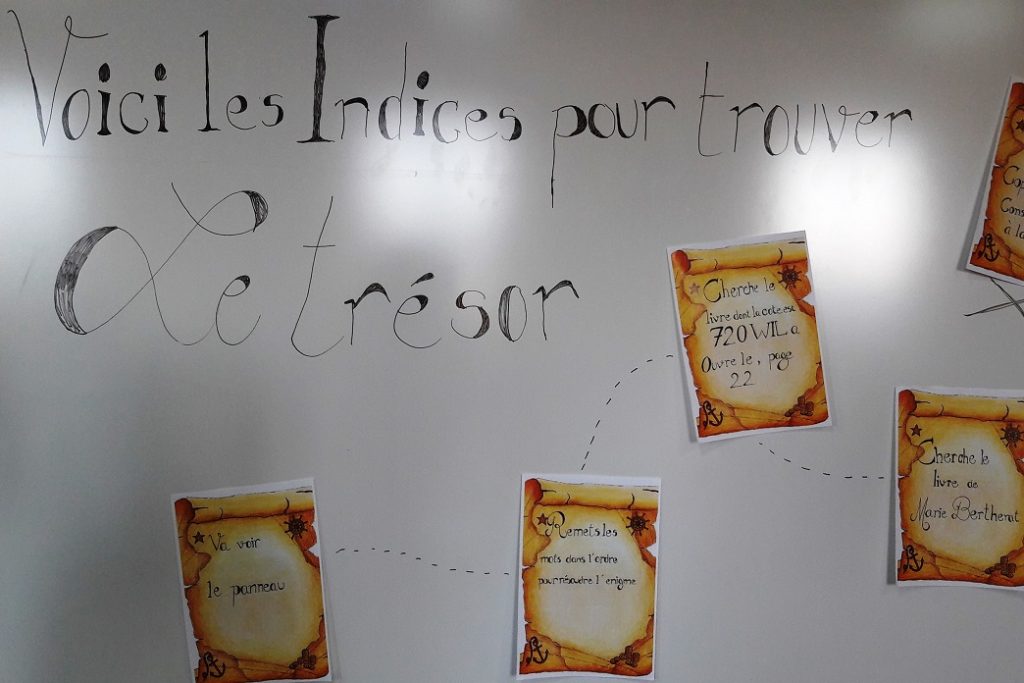 Voici les Indices pour trouver
Le trésor
Va voir
le panneau
Remets les
mots dans l'ordre
pour résoudre l'enigme
Cherche le
livre dont la cote est
720 WIL a
Ouvre le, page
22
Cherche le
livre de
Marie Berthenat
à la